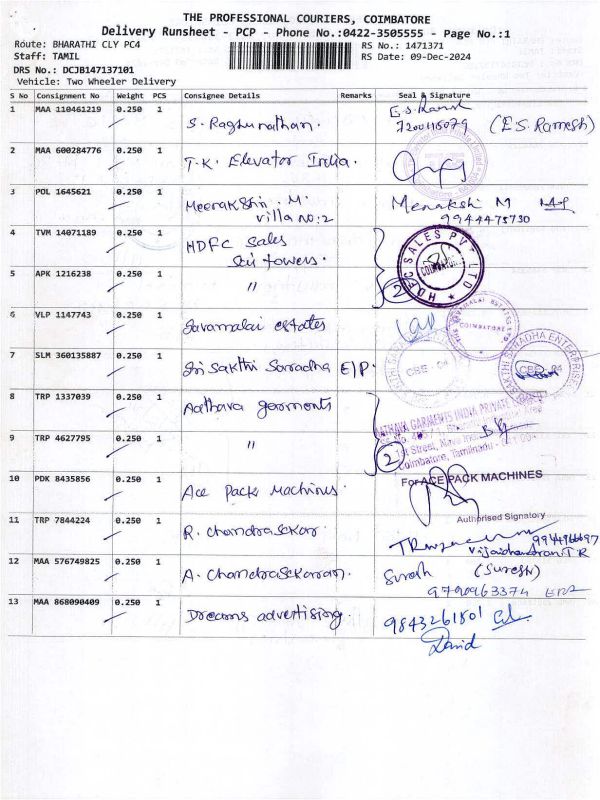 THE PROFESSIONAL COURIERS, COIMBATORE
Delivery Runsheet - PCP - Phone No.:0422-3505555 - Page No.:1
Route: BHARATHI CLY PC4 RS No.: 1471371
Staff: TAMIL RS Date: 09-Dec-2024
DRS No.: DCJB147137101
Vehicle: Two Wheeler Delivery
S No Consignment No Weight PCS Consignee Details Remarks Seal & Signature
1 MAA 110461219 0.250 1 S. Raghunathan. E.S. Ramesh
7200116079 (E.S. Ramesh)
2 MAA 600284776 0.250 1 T.K. Elevator India.
3 POL 1645621 0.250 1 Meenakshi. M. Menakshi M
Villa no:2 9944475730
4 TVM 14071189 0.250 1 HDFC Sales
Sai towers. HDFC SALES PVT LTD COIMBATORE
5 APK 1216238 0.250 1 " 2
6 VLP 1147743 0.250 1 Javamalai estates COIMBATORE
7 SLM 360135887 0.250 1 Sri Sakthi Saradha E/P. CBE - 04 SAKTHI SARADHA ENTERPRISES CBE - 04
8 TRP 1337039 0.250 1 Aathava garments AATHAVA GARMENTS INDIA PRIVATE LIMITED
9 TRP 4627795 0.250 1 " 2 1st Street, Nava India
Coimbatore, Tamilnadu
10 PDK 8435856 0.250 1 Ace Pack Machines. For ACE PACK MACHINES
Authorised Signatory
11 TRP 7844224 0.250 1 R. Chandrasekar.
Vijaichandran T R
12 MAA 576749825 0.250 1 A. Chandrasekaran. Suresh (Suresh)
9790963374
13 MAA 868090409 0.250 1 Dreams advertising. 9843261801
David